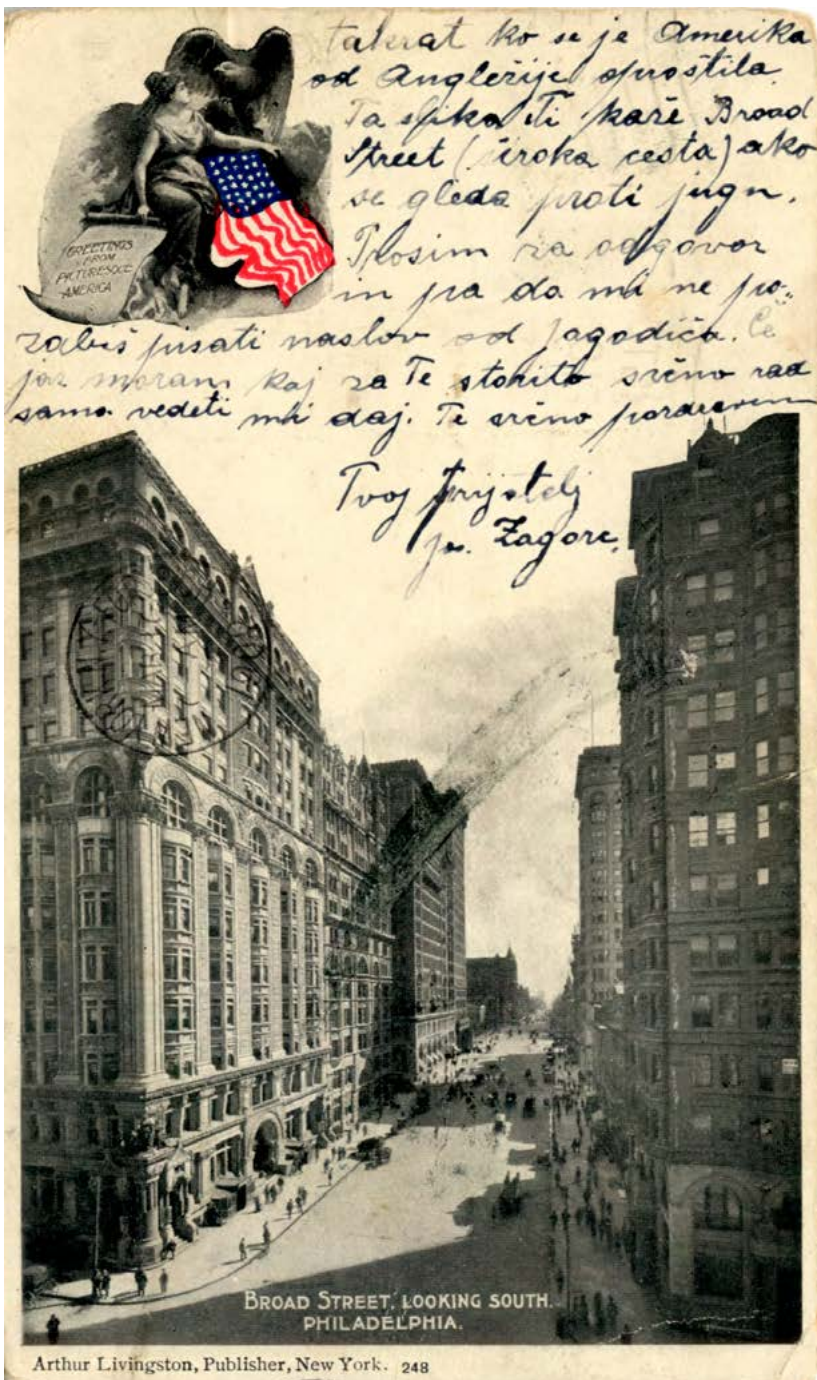 takrat ko se je Amerika
od Angležije oprostila.
Ta slika ti kaže Broad
Street (široka cesta) ako
se gleda proti jugu.
Prosim za odgovor
in pa da mi ne po-
zabiš pisati naslov od Jagodiča. Če
jaz moram kaj za Te storiti srčno rad
samo vedeti mi daj. Te srčno pozdravim
Tvoj prijatelj
Jos. Zagorc.
GREETINGS
FROM
PICTURESQUE
AMERICA
BROAD STREET, LOOKING SOUTH.
PHILADELPHIA.
Arthur Livingston, Publisher, New York. 248